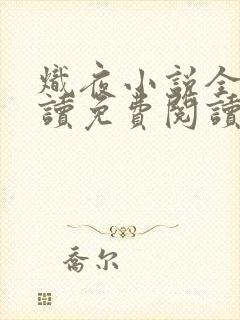 熾夜小說全
讀免費閱讀
喬尔